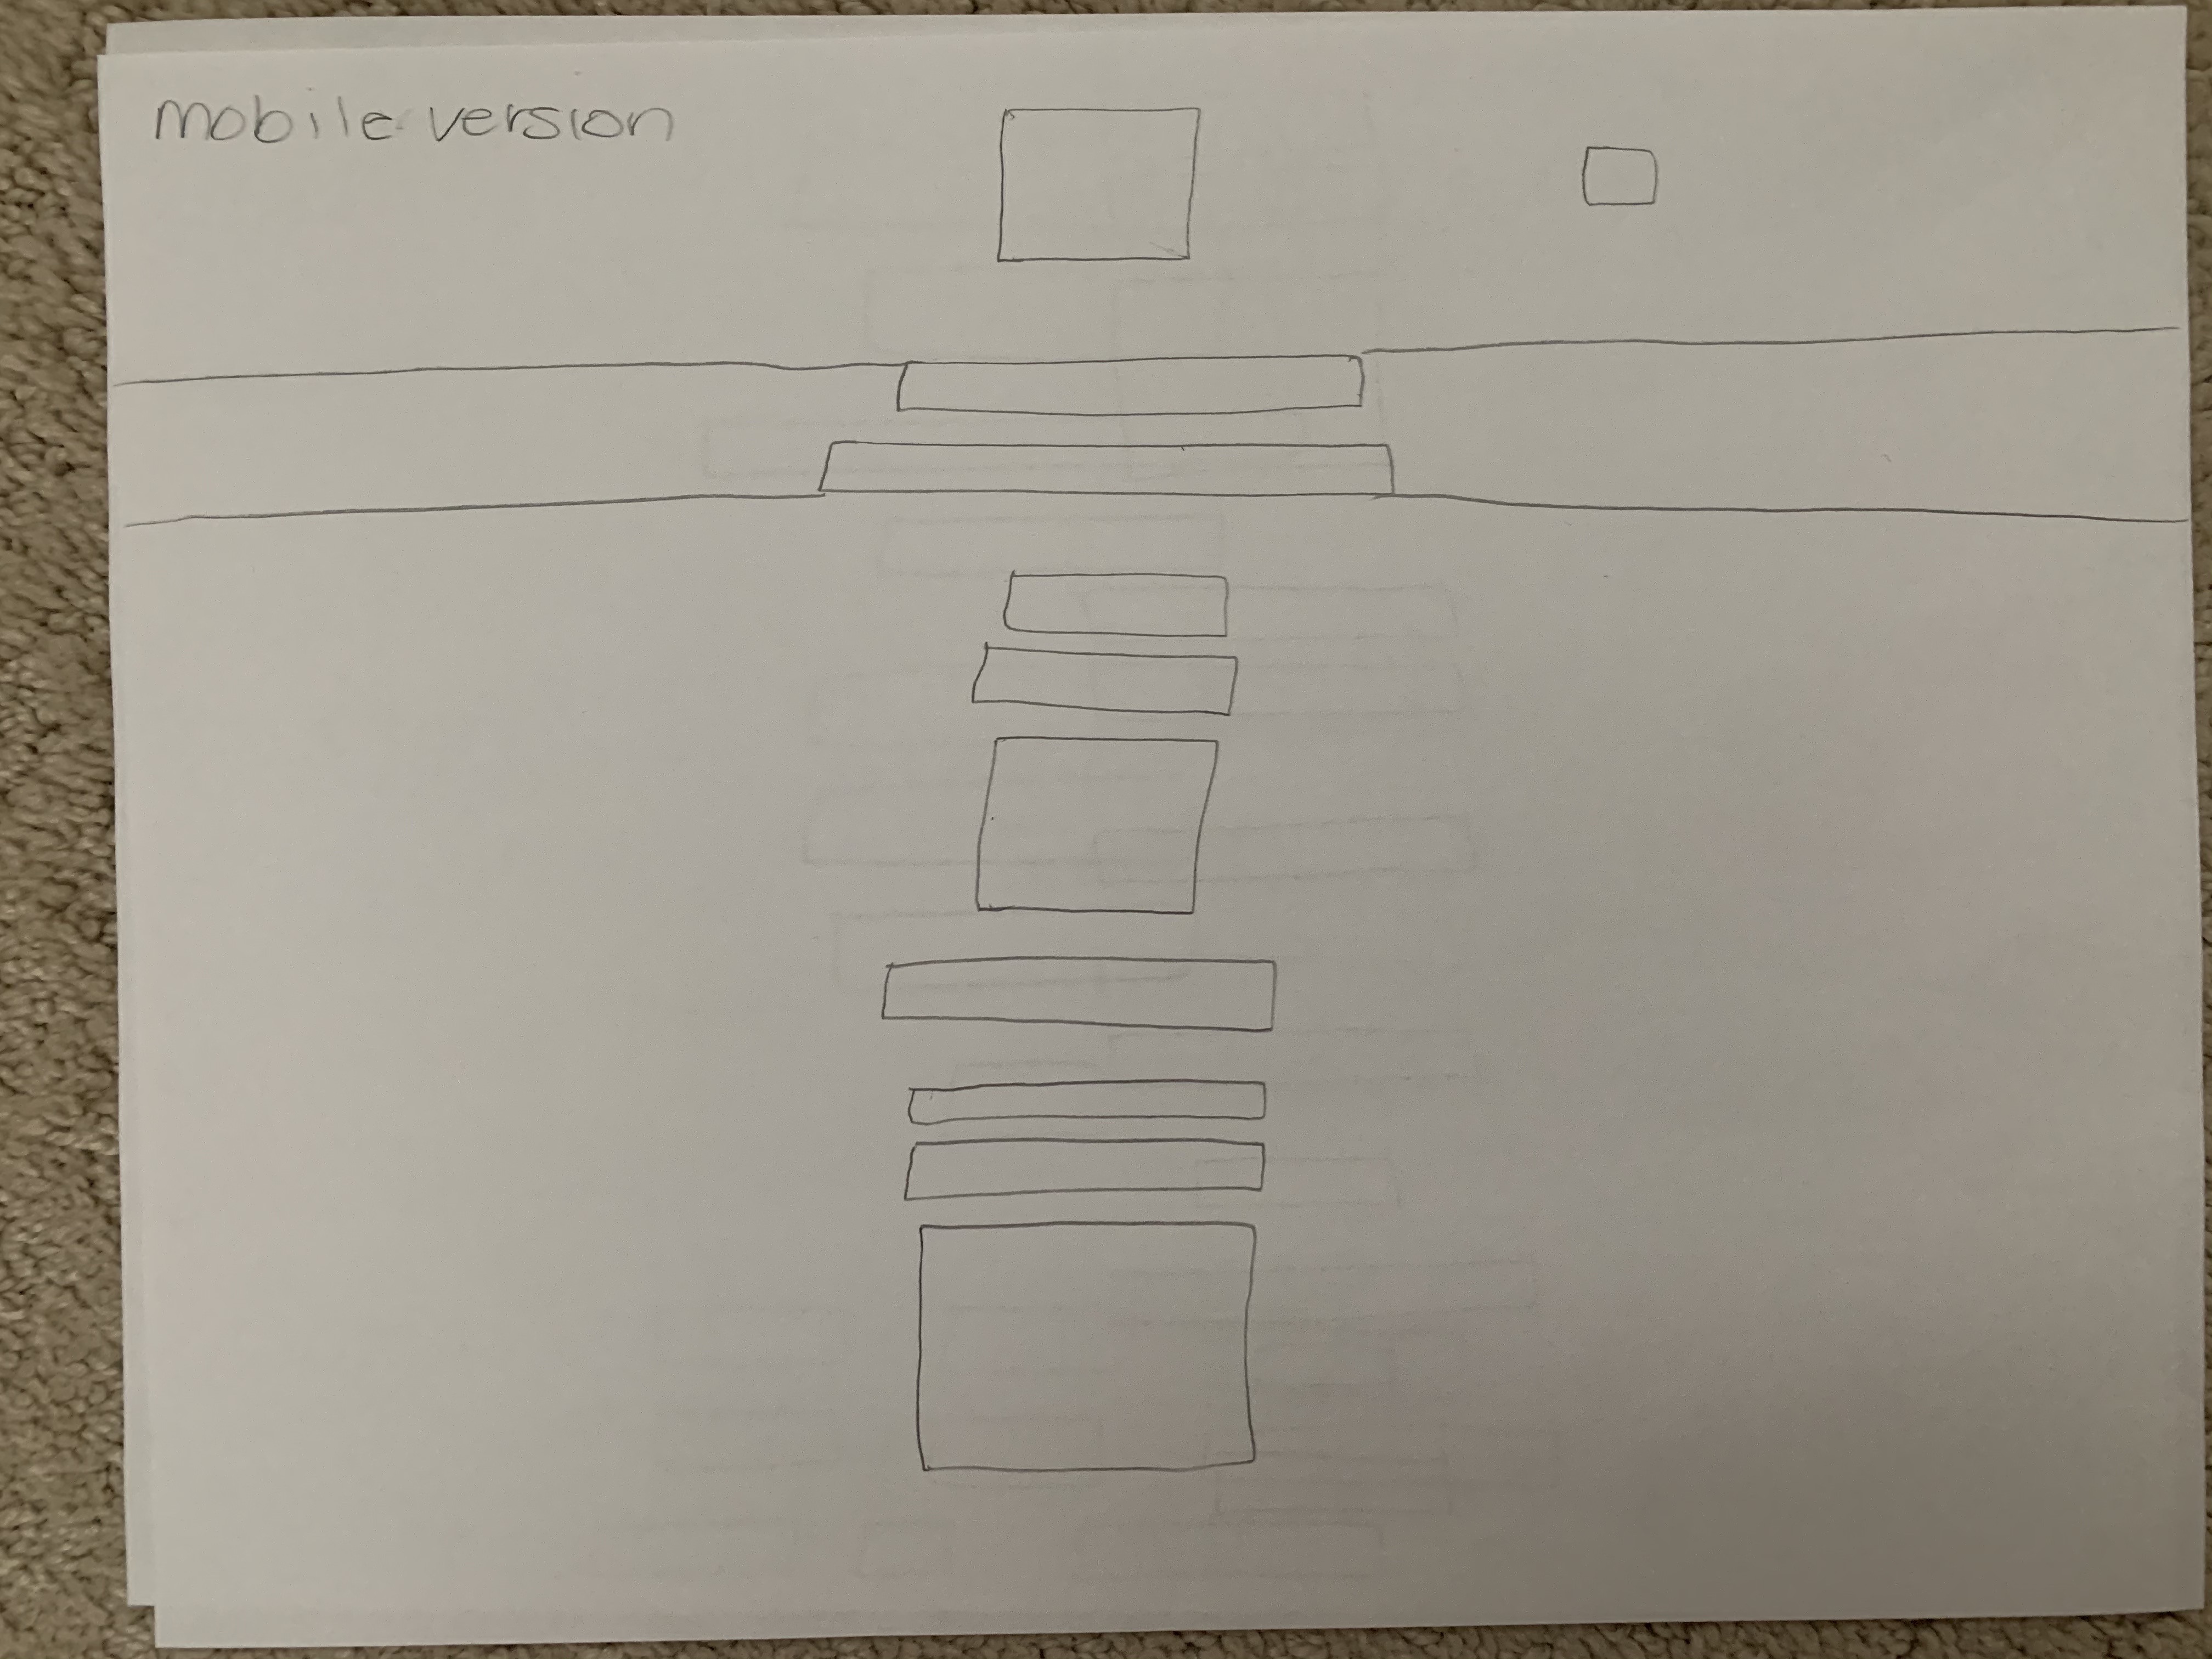 mobile version